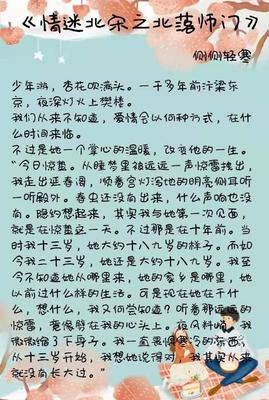 《情迷北宋之北落师门》
侧侧轻寒
少年游，杏花吹满头。一千多年前汴梁东
京，夜深灯火上樊楼。
我们从来不知道，爱情会以何种方式，在什
么时间来临。
不过是她一个掌心的温暖，改变他的一生。
“今日惊蛰。从睡梦里被远远一声惊雷拽出，
我走出延春阁，顺着宫灯泻地的明亮侧耳听
一听殿外。春虫还没有出来，什么声响也没
有。隐约想起来，其实我与她第一次见面，
就是在惊蛰这一天。不过那是在十年前。当
时我十三岁，她大约十八九岁的样子。而如
今我二十三岁，她还是大约十八九岁。我至
今不知道她从哪里来，她的家乡是哪里，她
以前过什么样的生活。可是现在她在干什
么，想什么，我又何尝知道？听着那远远的
惊雷，寞候劈在我的心头上。夜风料峭，我
微微缩了下身子。我一直畏惧寒冷的东西，
从十三岁开始，我想她说得对，我其实从来
就没有长大过。”